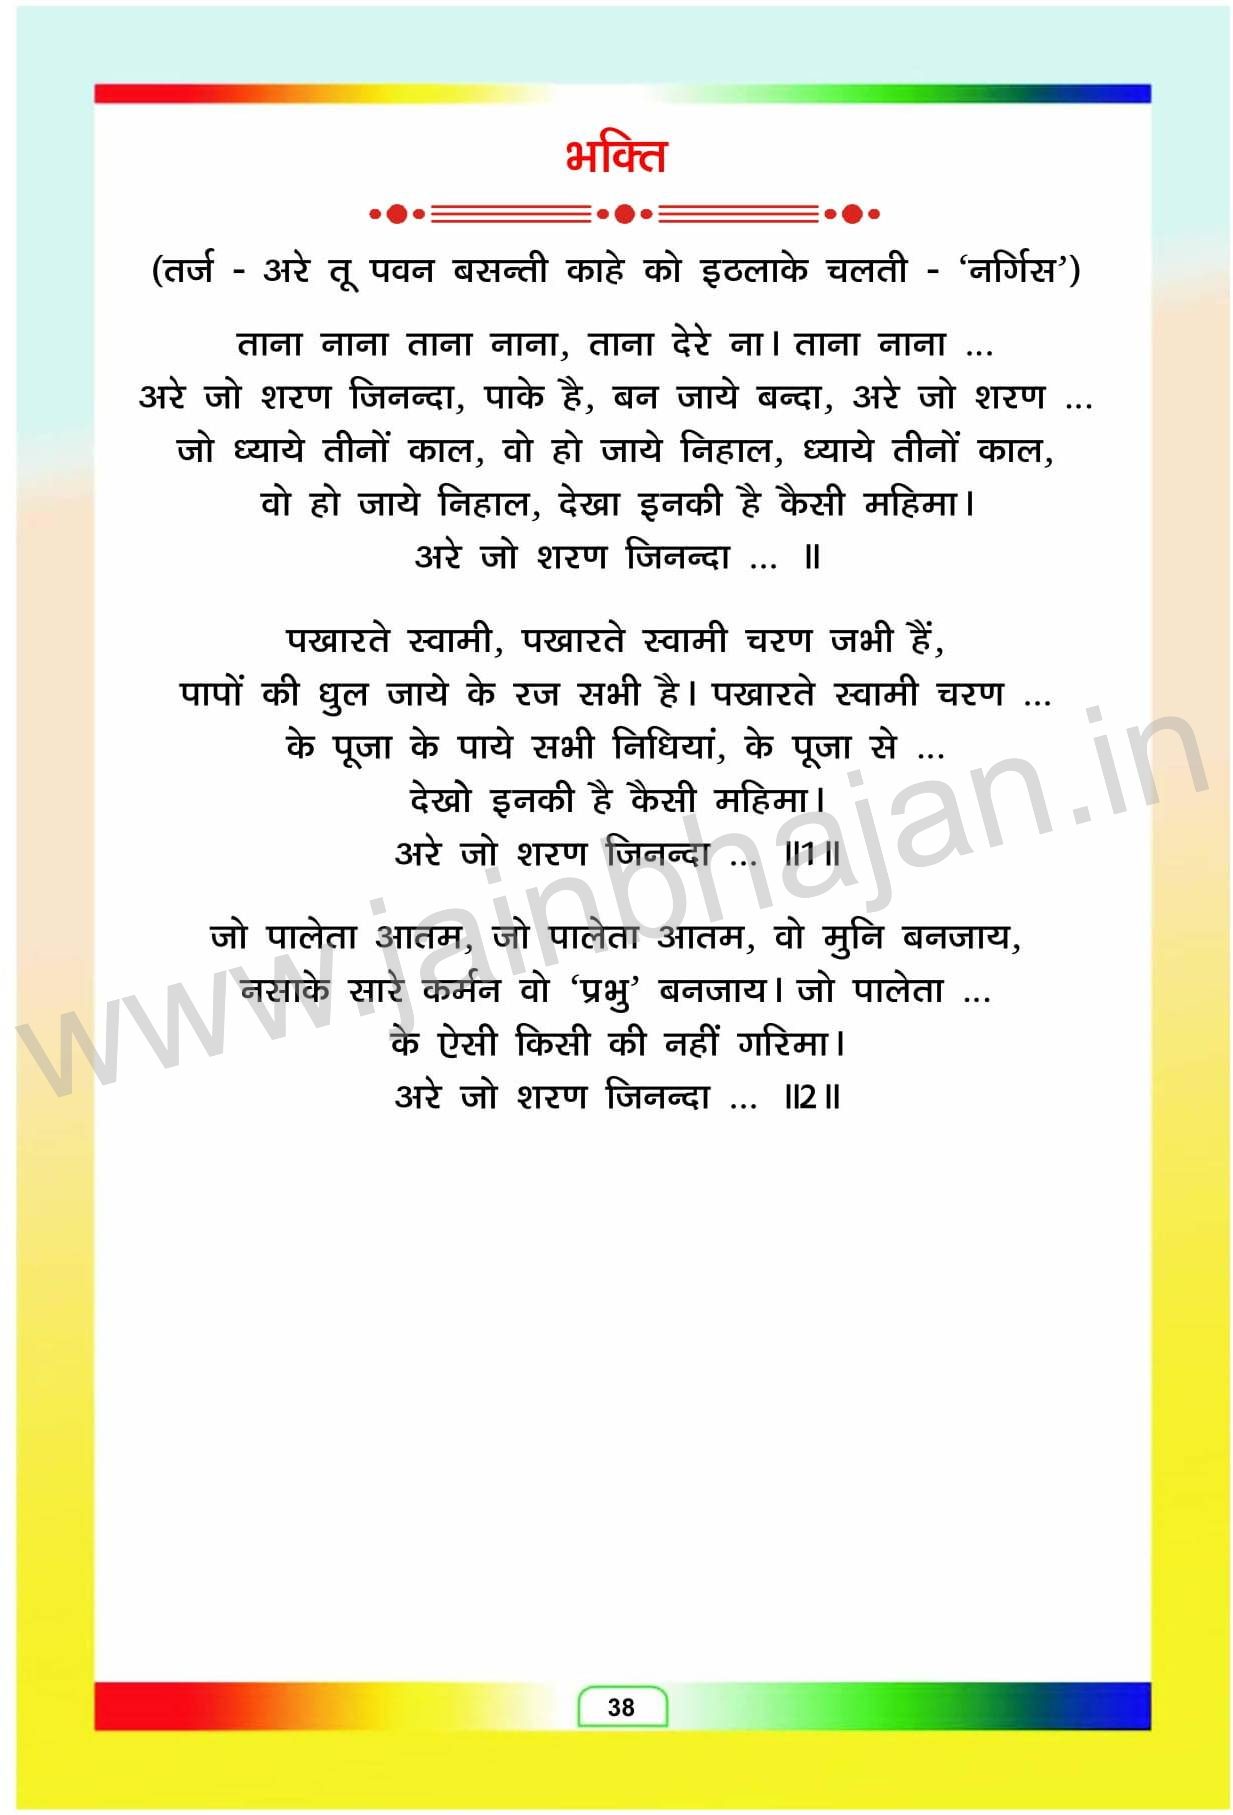 भक्ति
(तर्ज - अरे तू पवन बसन्ती काहे को इठलाके चलती - ‘नर्गिस’)
ताना नाना ताना नाना, ताना देरे ना। ताना नाना ...
अरे जो शरण जिनन्दा, पाके है, बन जाये बन्दा, अरे जो शरण ...
जो ध्याये तीनों काल, वो हो जाये निहाल, ध्याये तीनों काल,
वो हो जाये निहाल, देखा इनकी है कैसी महिमा।
अरे जो शरण जिनन्दा ... ॥
पखारते स्वामी, पखारते स्वामी चरण जभी हैं,
पापों की धुल जाये के रज सभी है। पखारते स्वामी चरण ...
के पूजा के पाये सभी निधियां, के पूजा से ...
देखो इनकी है कैसी महिमा।
अरे जो शरण जिनन्दा ... ॥1॥
जो पालेता आतम, जो पालेता आतम, वो मुनि बनजाय,
नसाके सारे कर्मन वो ‘प्रभु’ बनजाय। जो पालेता ...
के ऐसी किसी की नहीं गरिमा।
अरे जो शरण जिनन्दा ... ॥2॥
www.jainbhajan.in
38